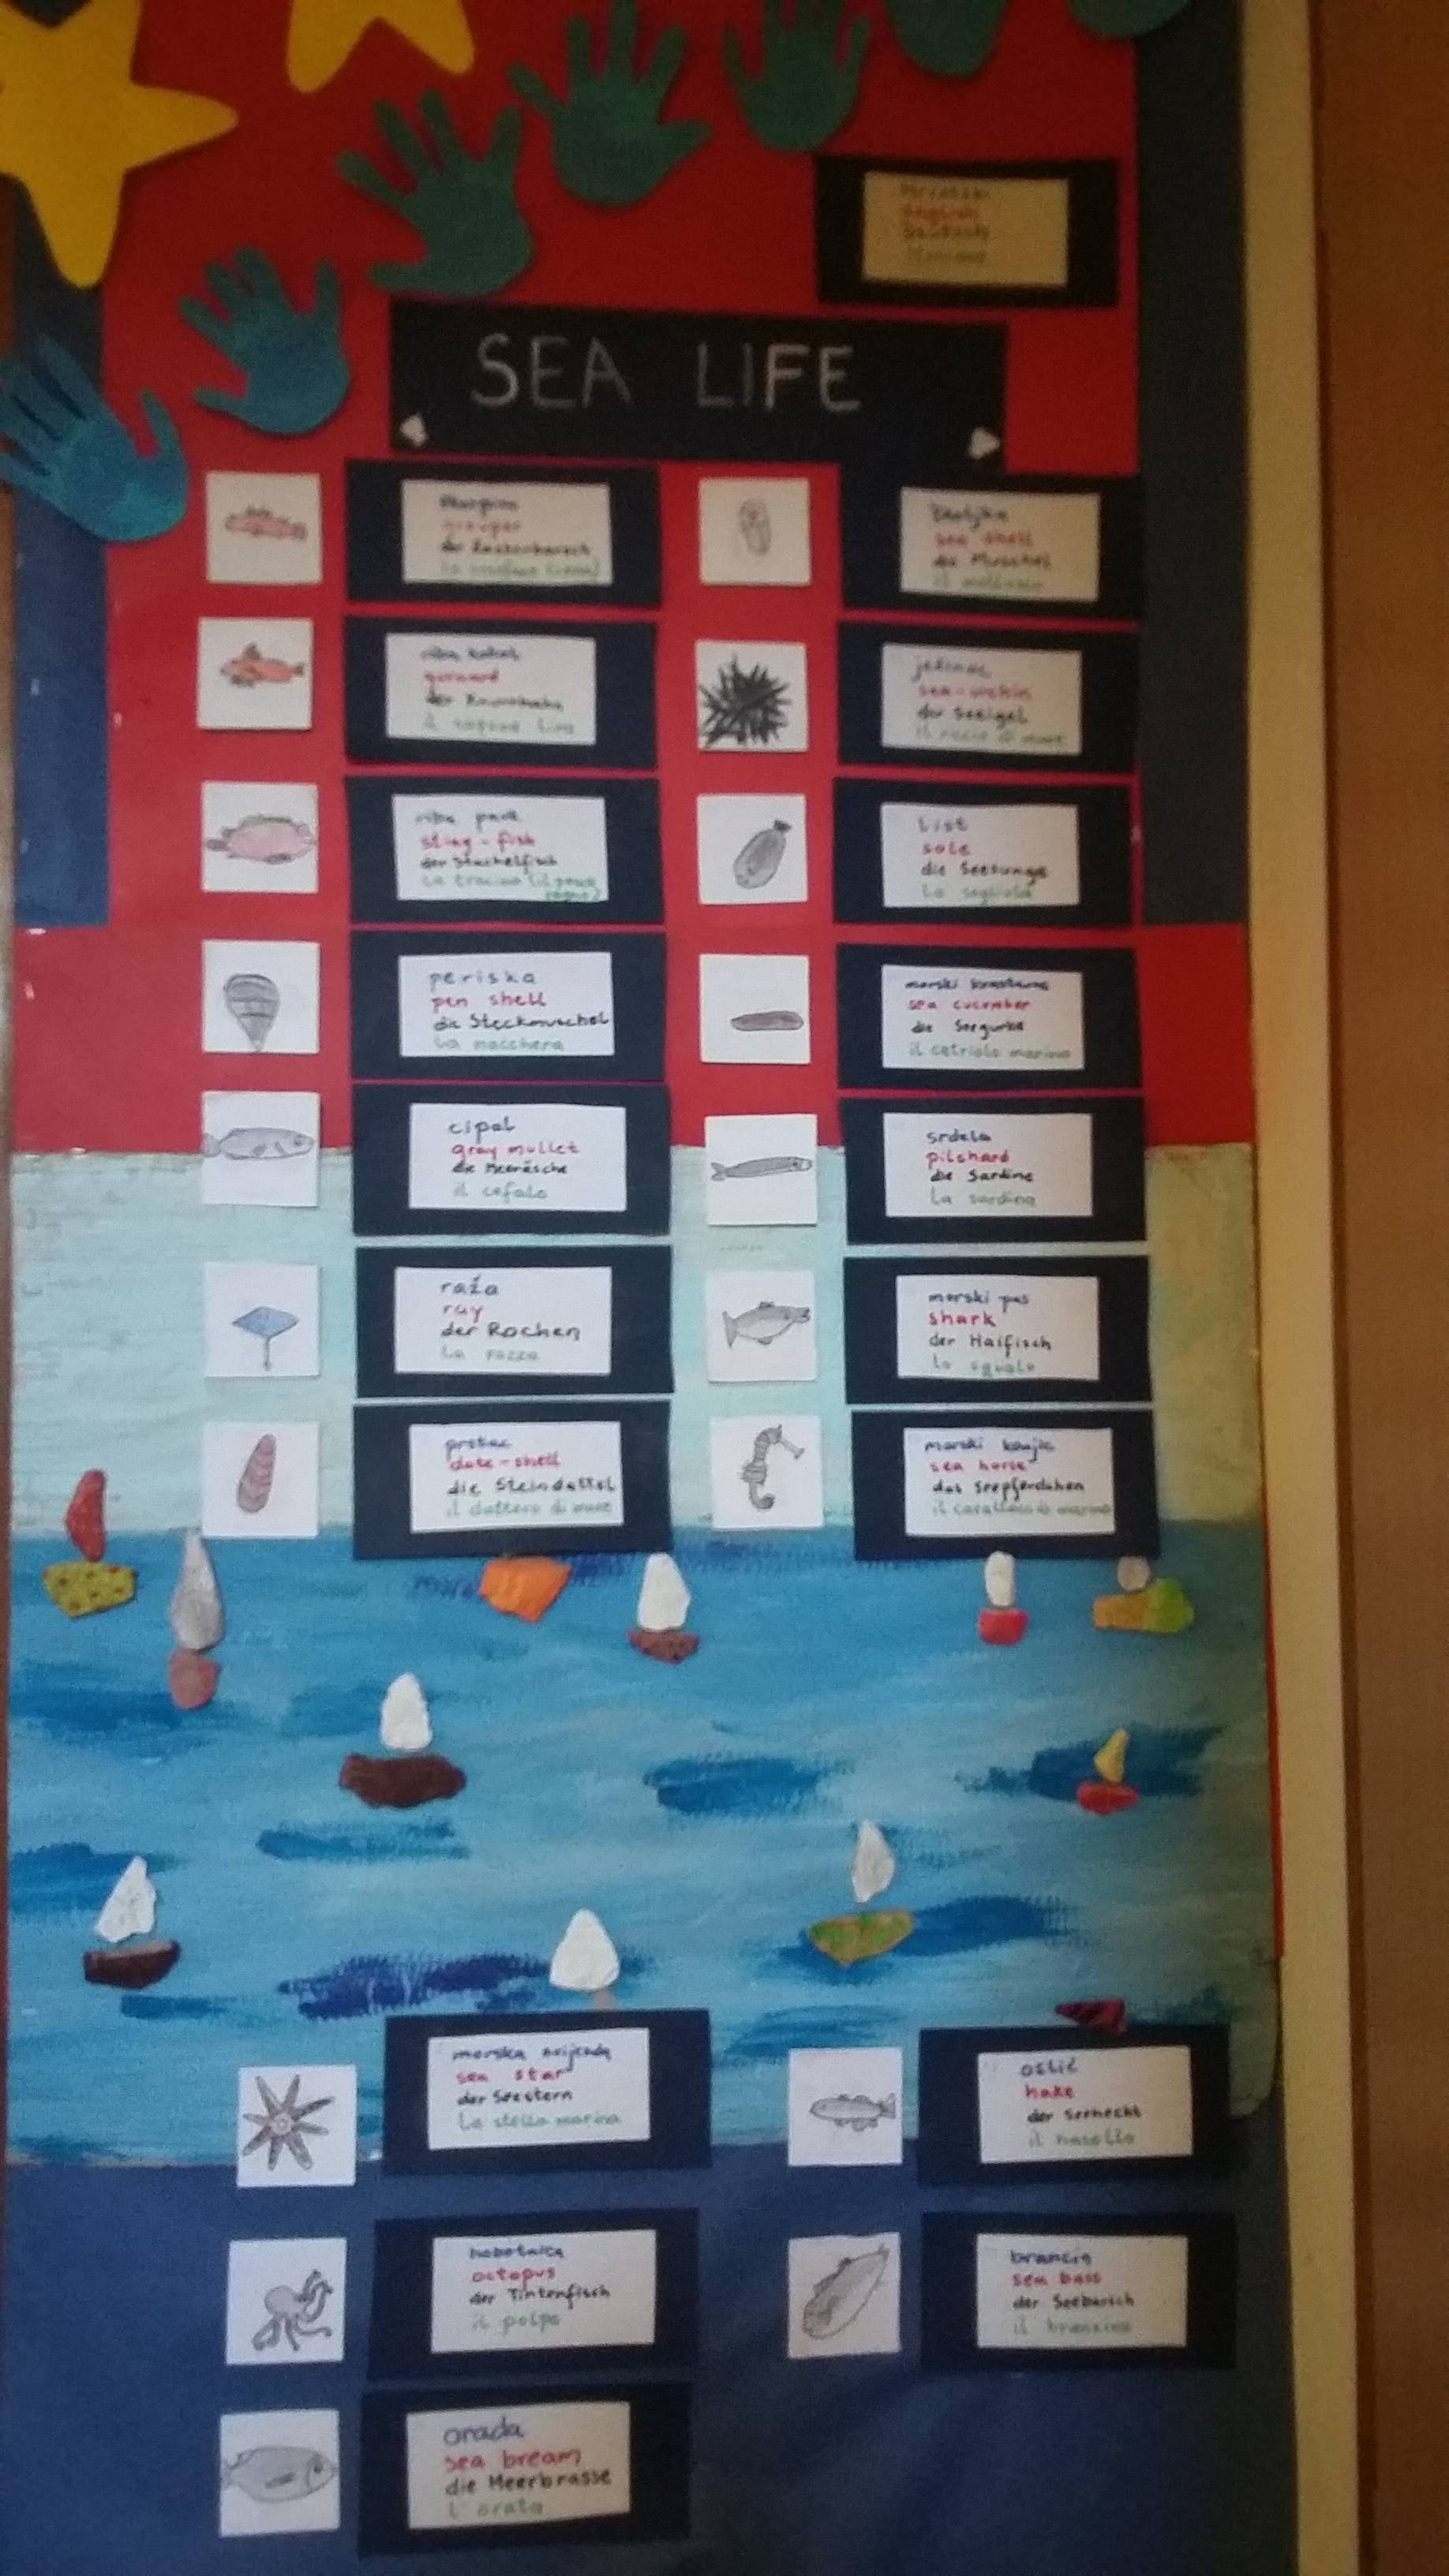 hrvatski
english
Deutsch
italiano
SEA LIFE
škarpina
grouper
la
školjka
sea shell
die Muschel
il mollusco
riba kokot
gurnard
der
il
ježinac
sea-urchin
der Seeigel
il riccio di mare
riba pauk
sting-fish
der Stachelfisch
la tracina (il pesce
ragno)
list
sole
die Seezunge
la sogliola
periska
pen shell
die Steckmuschel
la nacchera
morski krastavac
sea cucumber
die Seegurke
il cetriolo marino
cipal
gray mullet
die Meeräsche
il cefalo
srdela
pilchard
die Sardine
la sardina
raža
ray
der Rochen
la razza
morski pas
shark
der Haifisch
lo squalo
prstac
date-shell
die Steindattel
il dattero di mare
morski konjic
sea horse
das Seepferdchen
il marino
morska zvijezda
sea star
der Seestern
la stella marina
oslić
hake
der Seehecht
il nasello
hobotnica
octopus
der Tintenfisch
il polpo
brancin
sea bass
der Seebarsch
il branzino
orada
sea bream
die Meerbrasse
l'orata